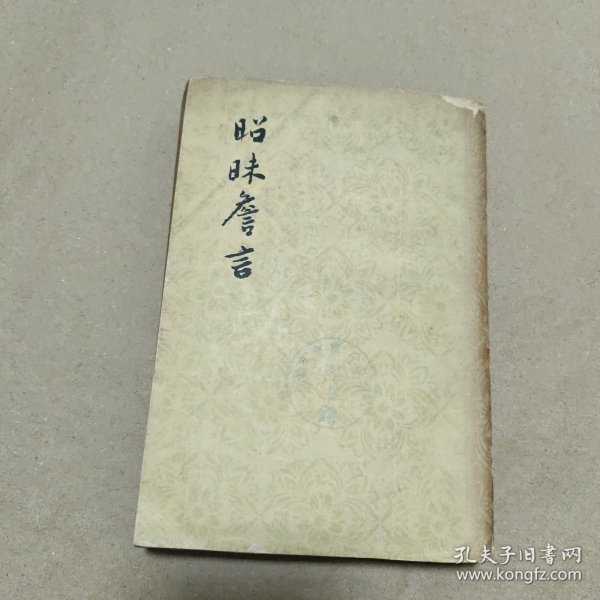 昭昧詹言
孔夫子旧書网
www.kongfz.com